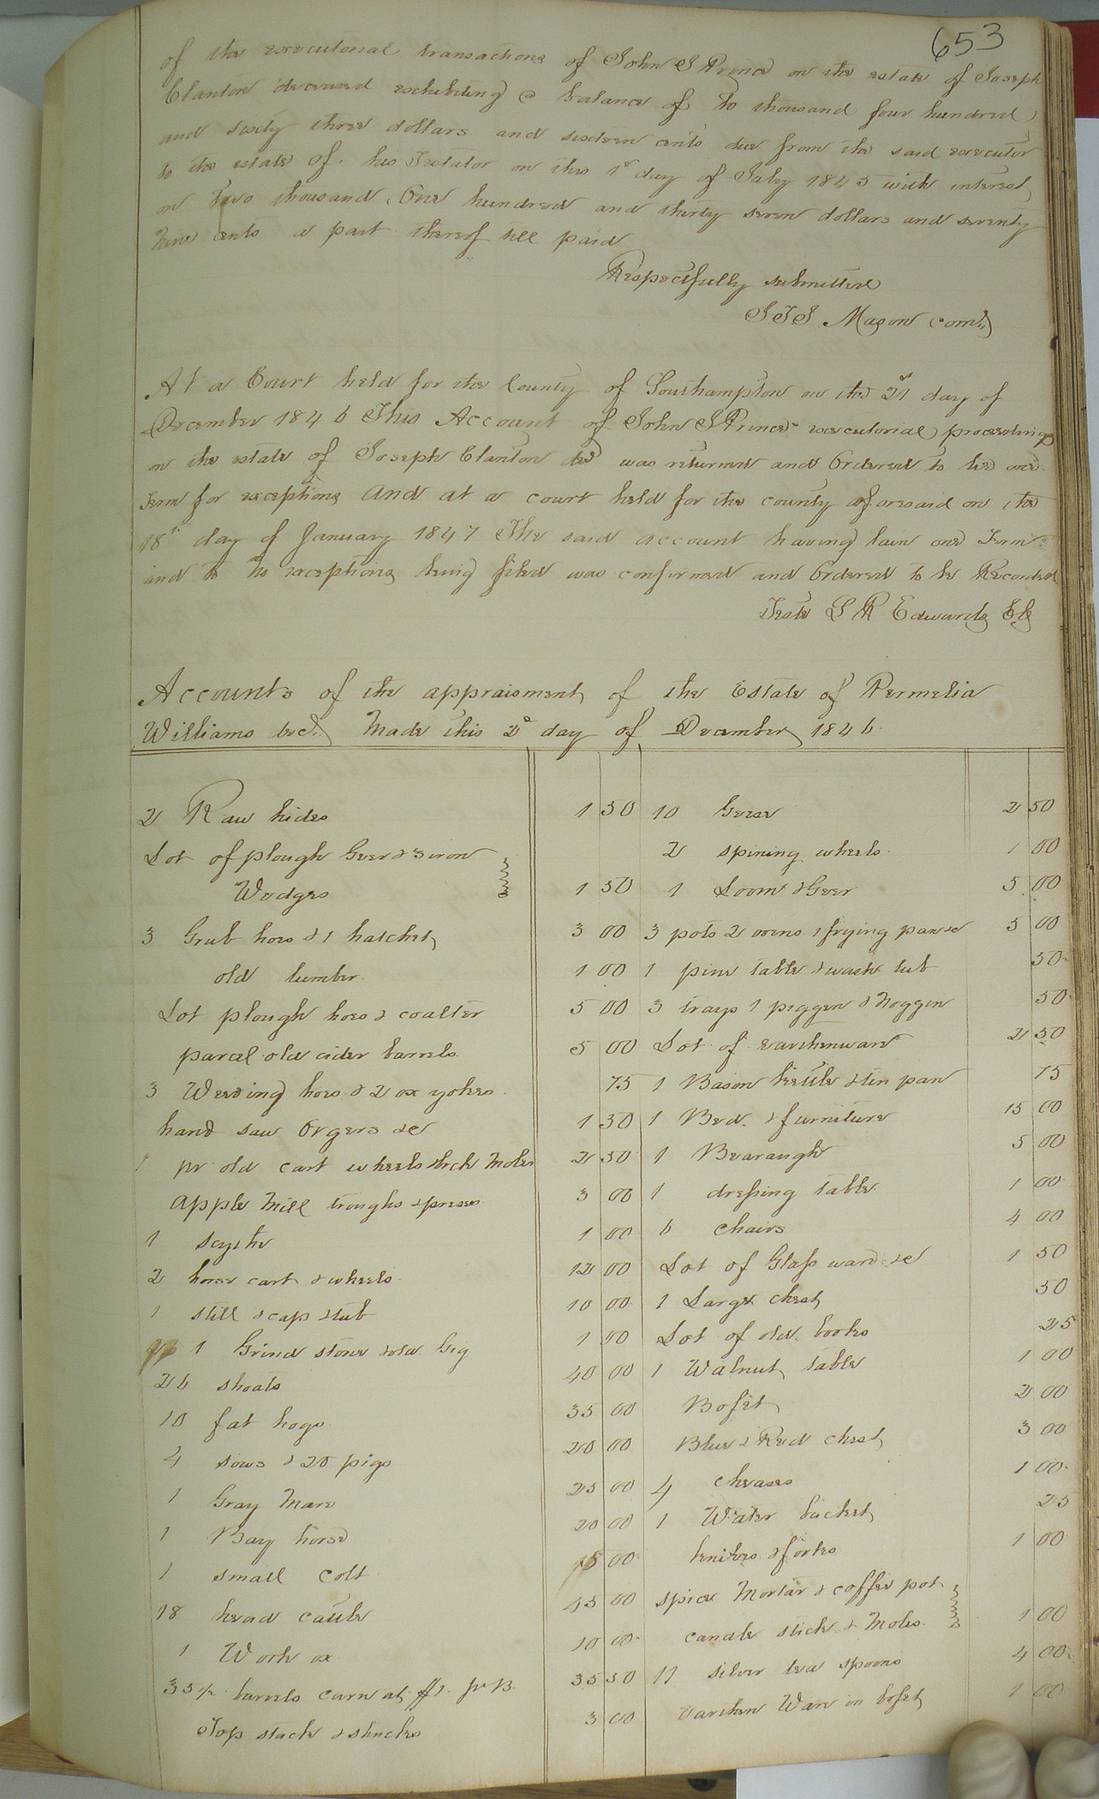 653
of the executorial transactions of John S Prince on the estate of Joseph
Clanton deceased exhibiting a balance of To thousand four hundred
and sixty three dollars and sixteen cents due from the said executor
to the estate of his Testator on this 1st day of July 1845 with interest
on Two thousand One hundred and thirty seven dollars and seventy
nine cents a part thereof till paid
Respectfully submitted
Mason comr
At a Court held for the County of Southampton on the 21st day of
December 1846 This Account of John S Prince executorial proceedings
on the estate of Joseph Clanton decd was returned and Ordered to lie one
Term for exceptions And at a court held for the county aforesaid on the
18th day of January 1847 The said account having lain one Term
and to no exceptions being filed was confirmed and Ordered to be Recorded
Teste L R Edwards Clk
Accounts of the appraisment of the Estate of Permelia
Williams decd. Made this 2d day of December 1846
2 Raw hides 1 50
Lot of plough Geer & iron
Wedges 1 50
3 Grub hoes & 1 hatchet 3 00
old lumber 1 00
Lot plough hoes & coalter 5 00
parcel old cider barrels 5 00
3 Weeding hoes & 2 ox yokes 75
hand saw Orgers &c 1 50
1 pr old cart wheels &rch Moles 2 50
apple Mill troughs & press 3 00
1 scythe 1 00
2 horse cart & wheels 12 00
1 still & cap & tub 10 00
1 Grind stone & old Gig 1 00
26 shoats 40 00
10 fat hogs 35 00
4 sows & 20 pigs 20 00
1 Gray Mare 25 00
1 Bay horse 20 00
1 small colt 15 00
18 head cattle 45 00
1 Work ox 10 00
35 1/2 barrels corn at $1. pr B 35 50
Top stack & shucks 3 00
10 Geese 2 50
2 spining wheels 1 00
1 Loom & Geer 5 00
3 pots 2 ovens & frying pan &c 5 00
1 pine table & wash tub 50
3 trays 1 piggen & Noggin 50
Lot of earthenware 2 50
1 Bason kettle & tin pan 75
1 Bed & furniture 15 00
1 Bearaugh 5 00
1 dressing table 1 00
6 chairs 4 00
Lot of Glass ware &c 1 50
1 Large chest 50
Lot of old books 25
1 Walnut table 1 00
Bofet 2 00
Blue & Red chest 3 00
4 cheases 1 00
1 Water bucket 25
knives & forks 1 00
spice Mortar & coffee pot
candle stick & Moles 1 00
11 silver tea spoons 4 00
earthen Ware in bofet 1 00